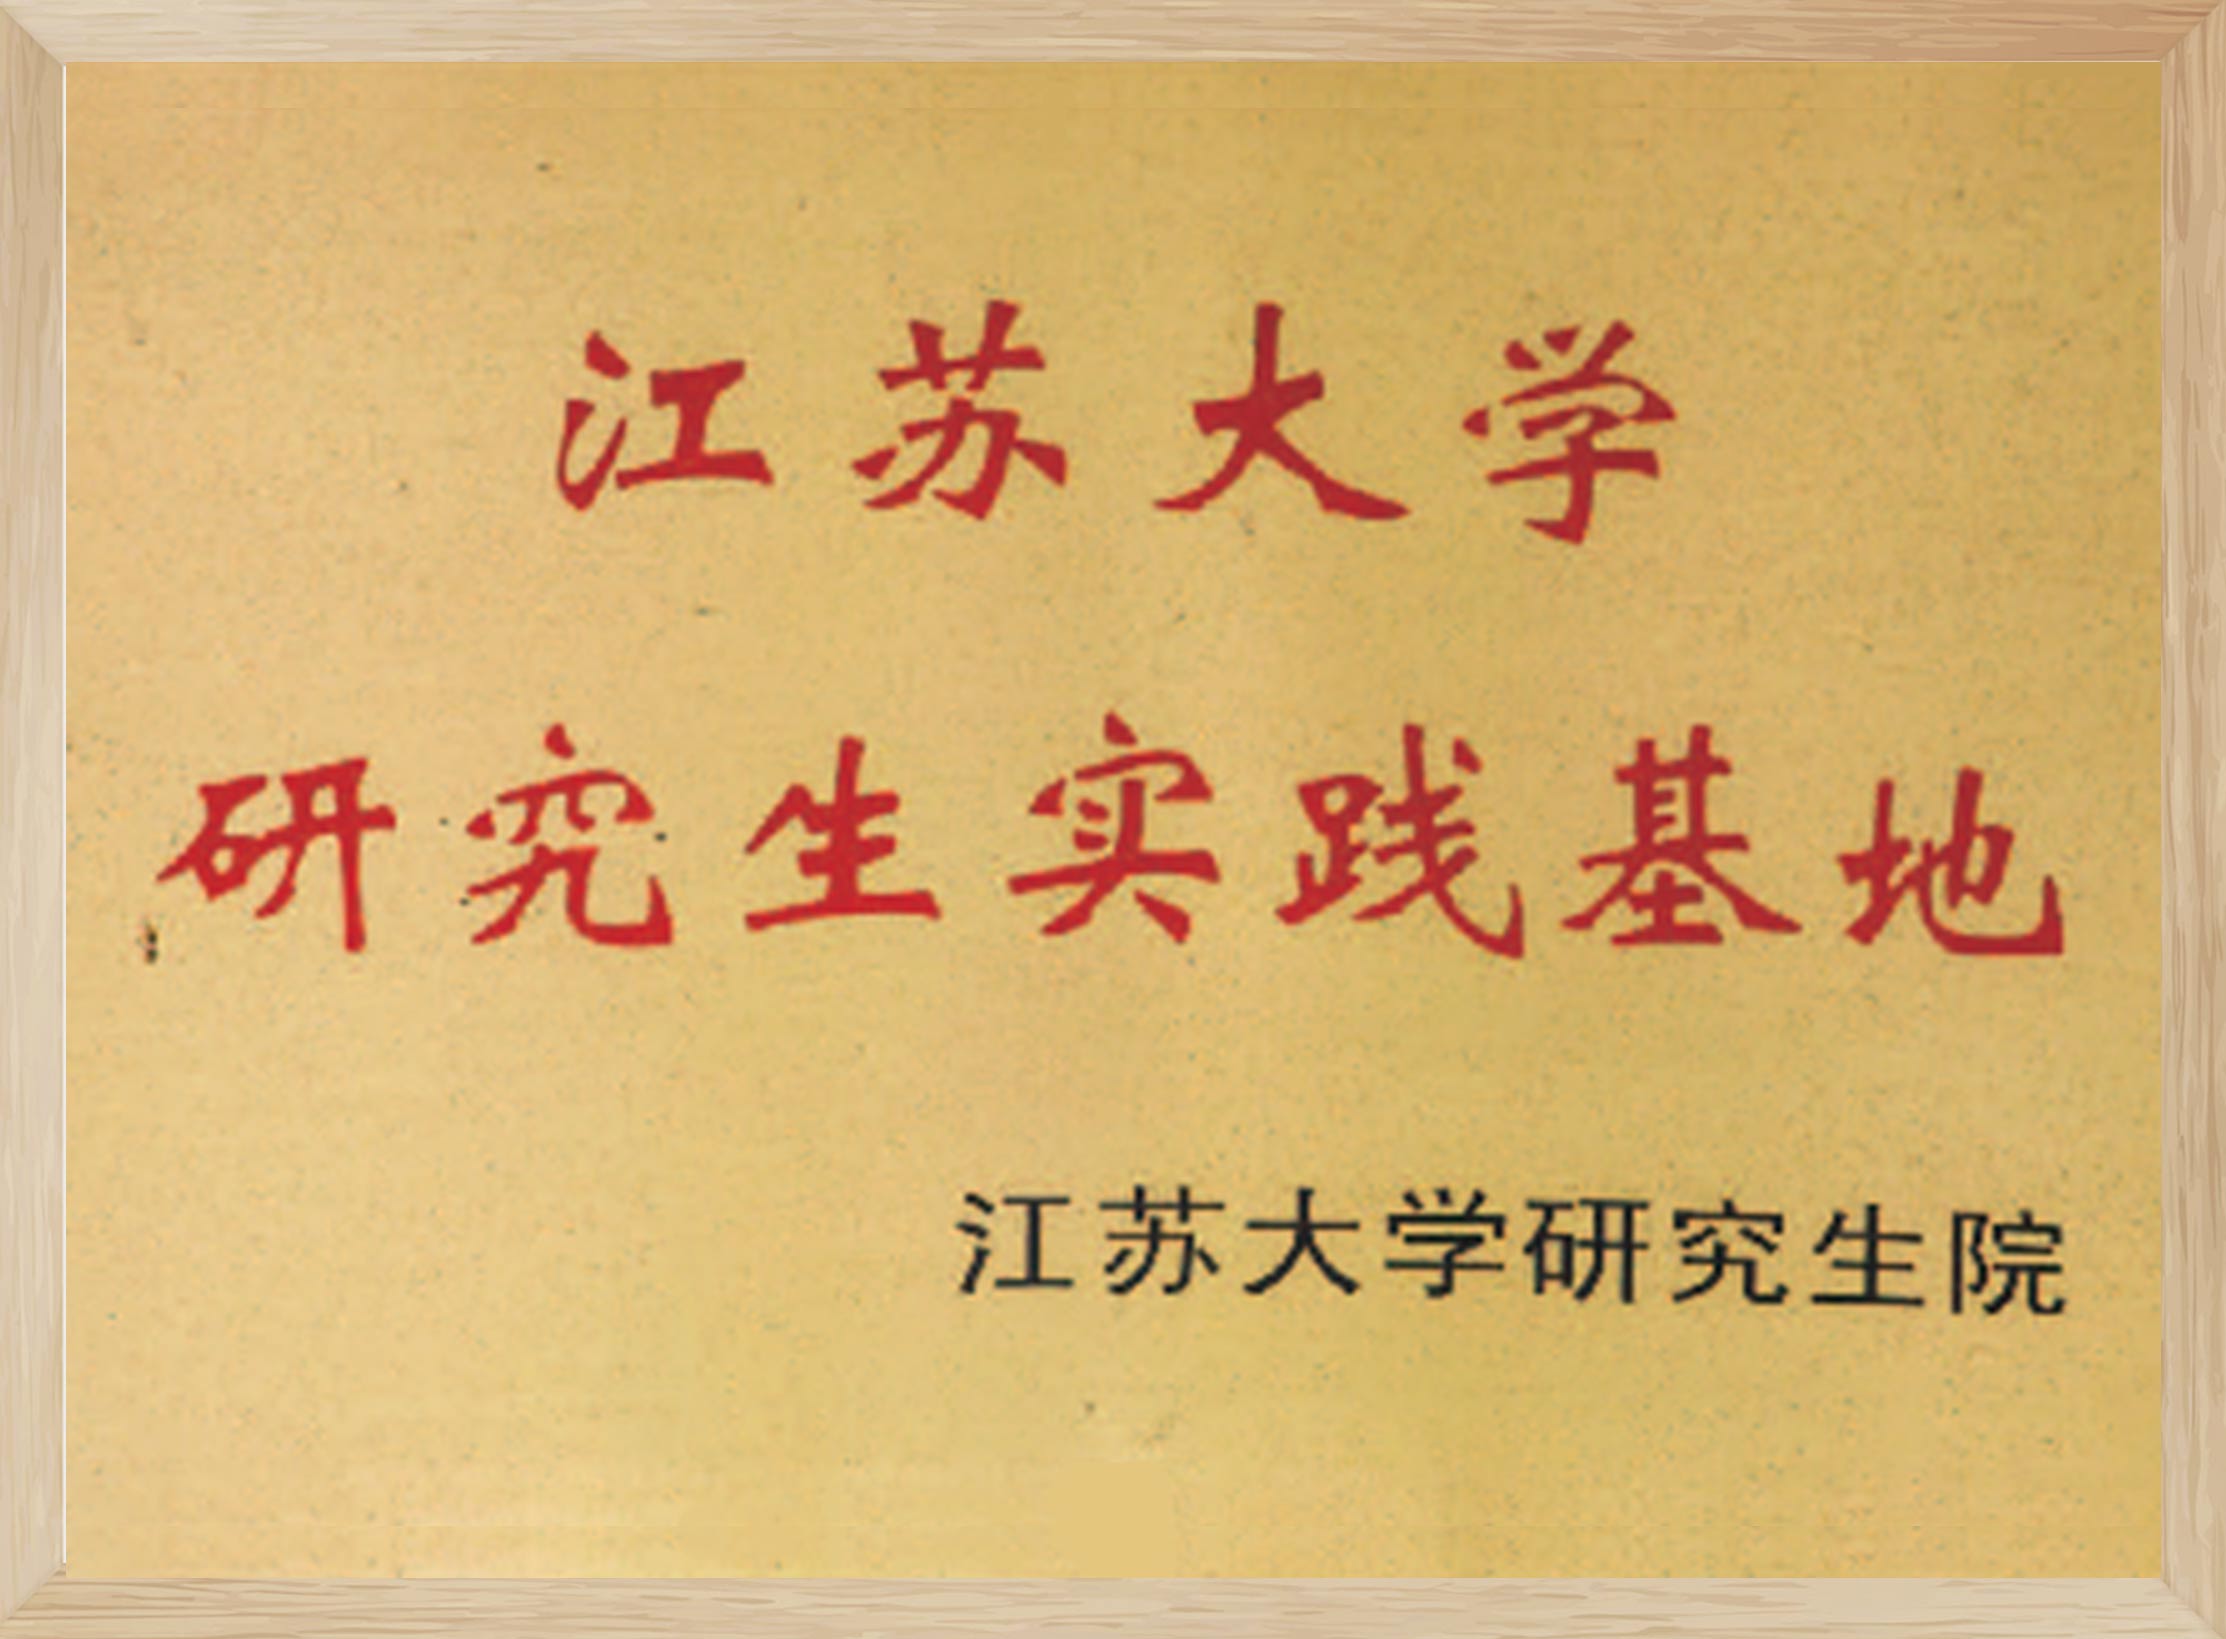 江苏大学
研究生实践基地
江苏大学研究生院